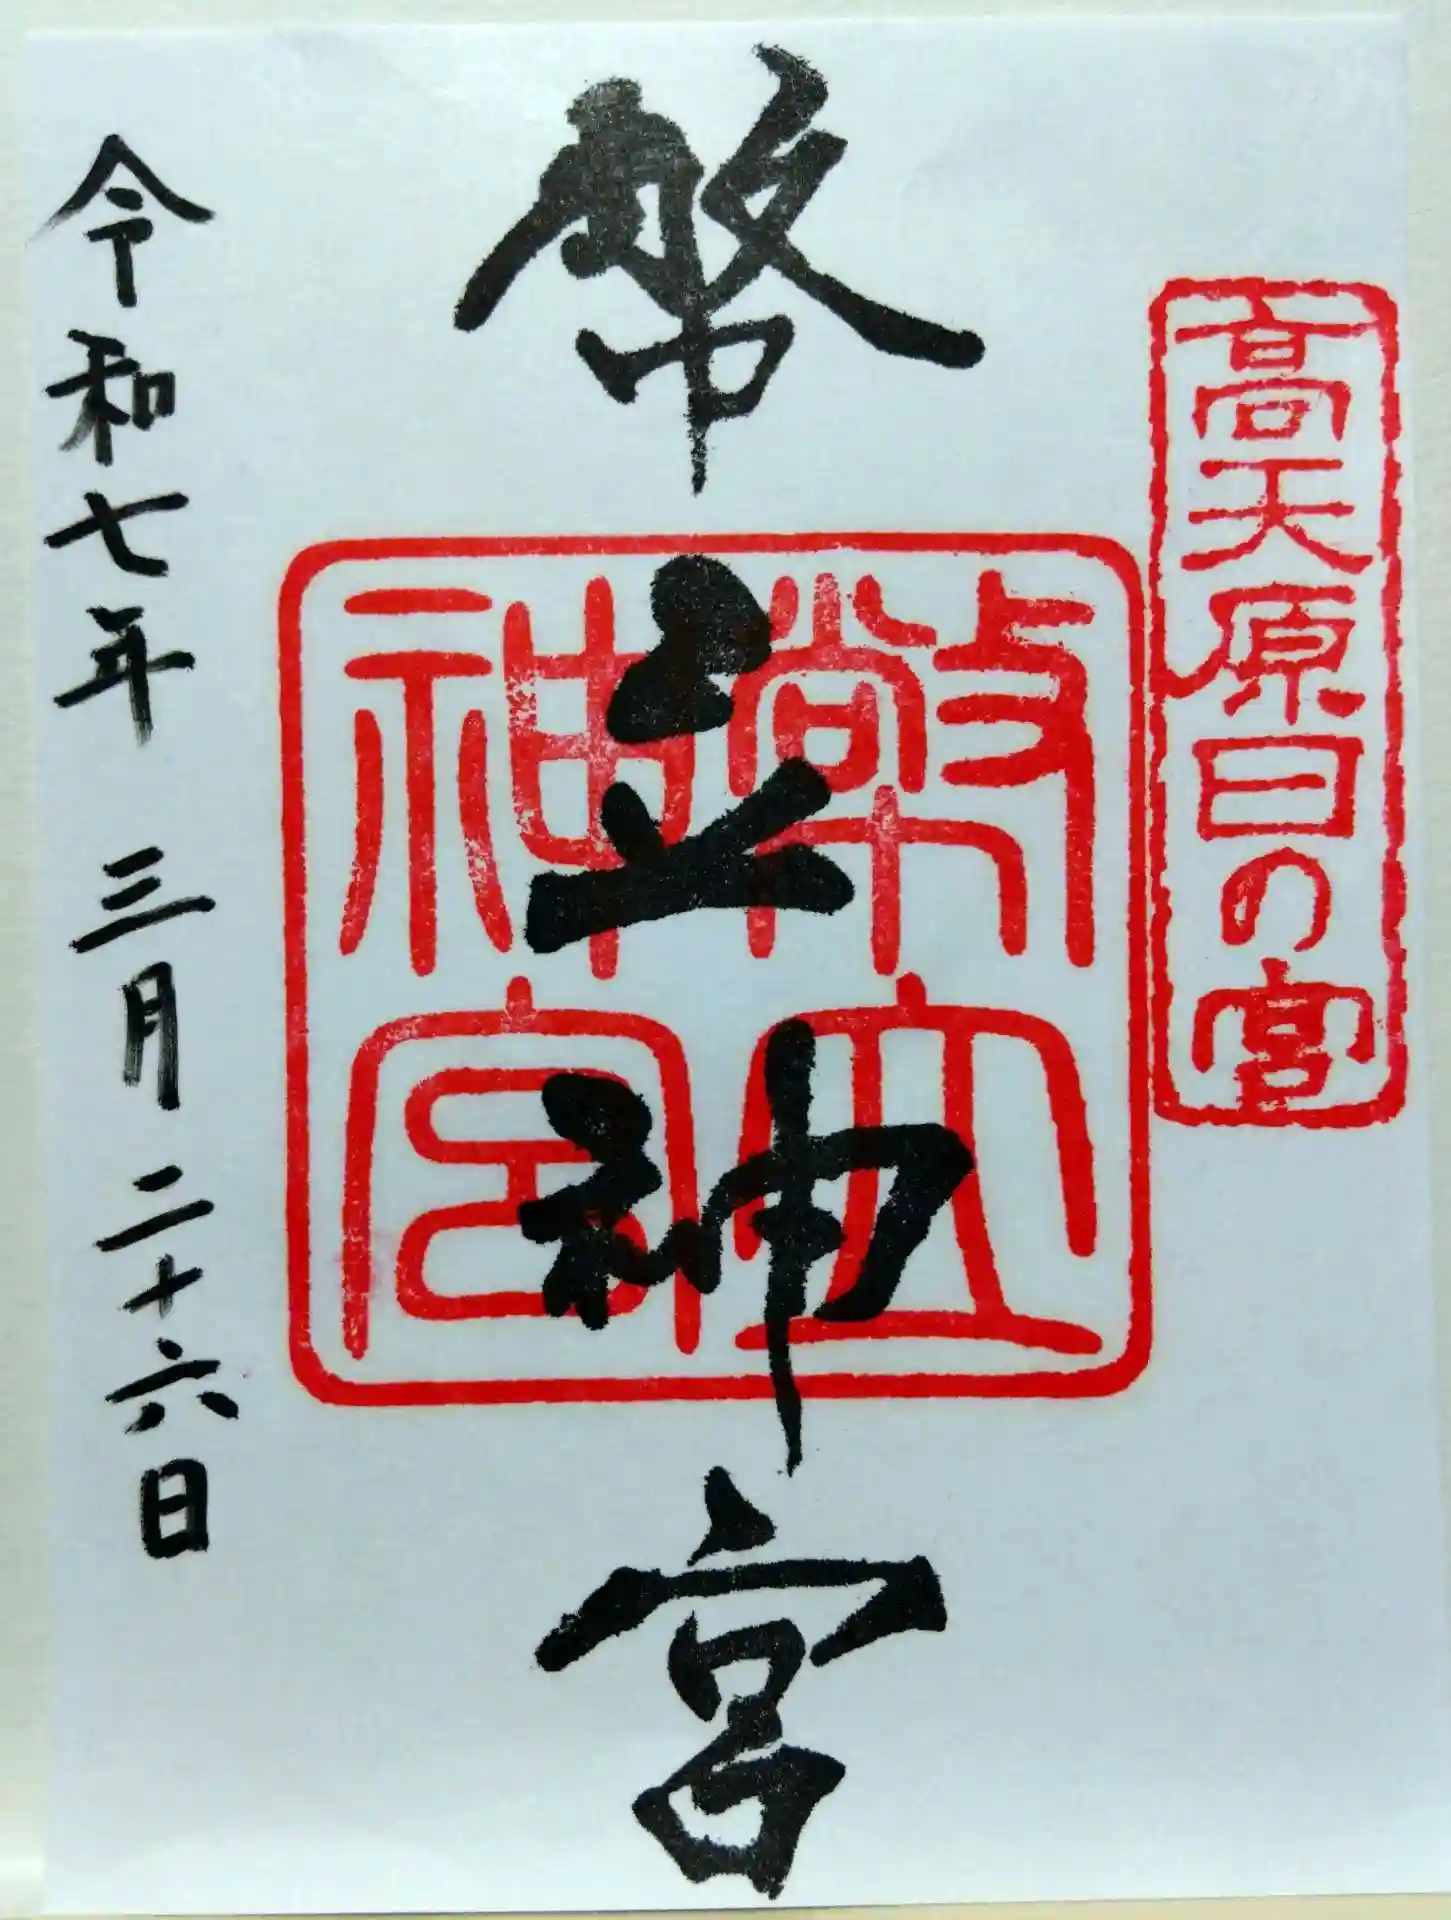 高天原日の宮
幣立神宮
幣立神宮
令和七年 三月二十六日